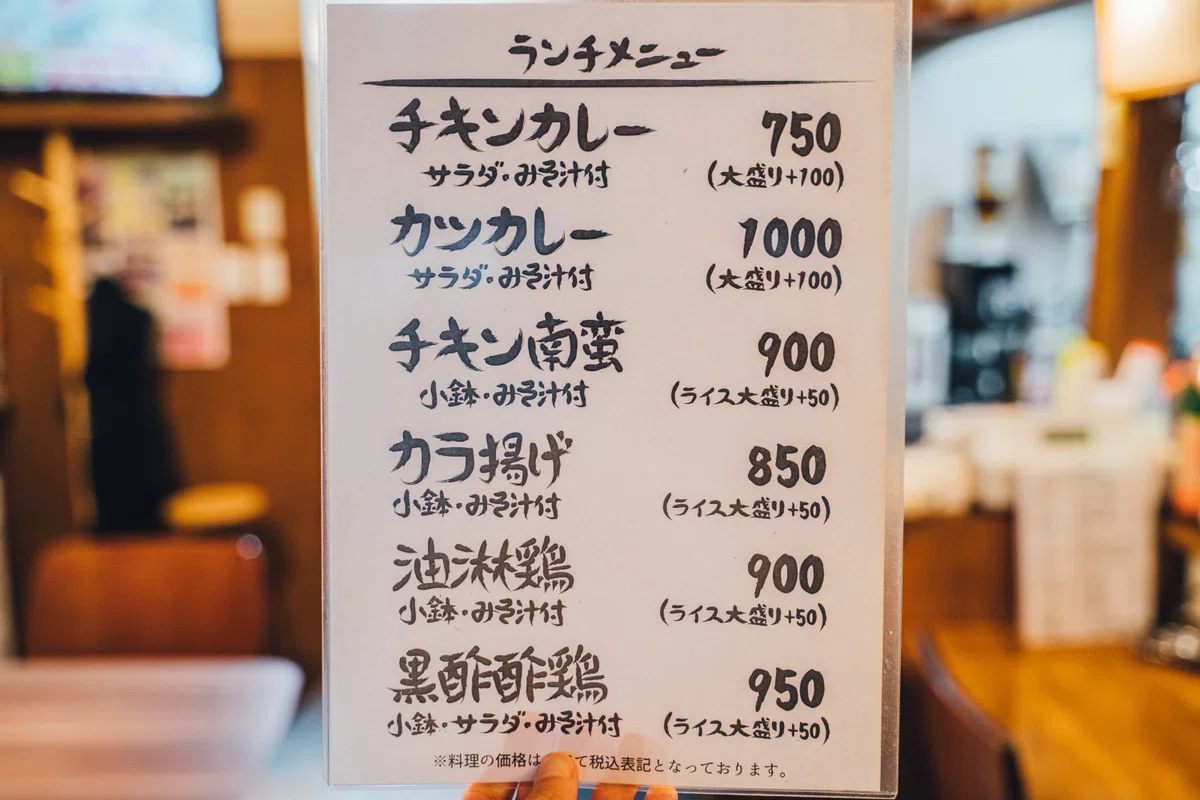 ランチメニュー
チキンカレー 750
サラダ・みそ汁付 (大盛り+100)
カツカレー 1000
サラダ・みそ汁付 (大盛り+100)
チキン南蛮 900
小鉢・みそ汁付 (ライス大盛り+50)
カラ揚げ 850
小鉢・みそ汁付 (ライス大盛り+50)
油淋鶏 900
小鉢・みそ汁付 (ライス大盛り+50)
黒酢酢鶏 950
小鉢・サラダ・みそ汁付 (ライス大盛り+50)
※料理の価格は て税込表記となっております。